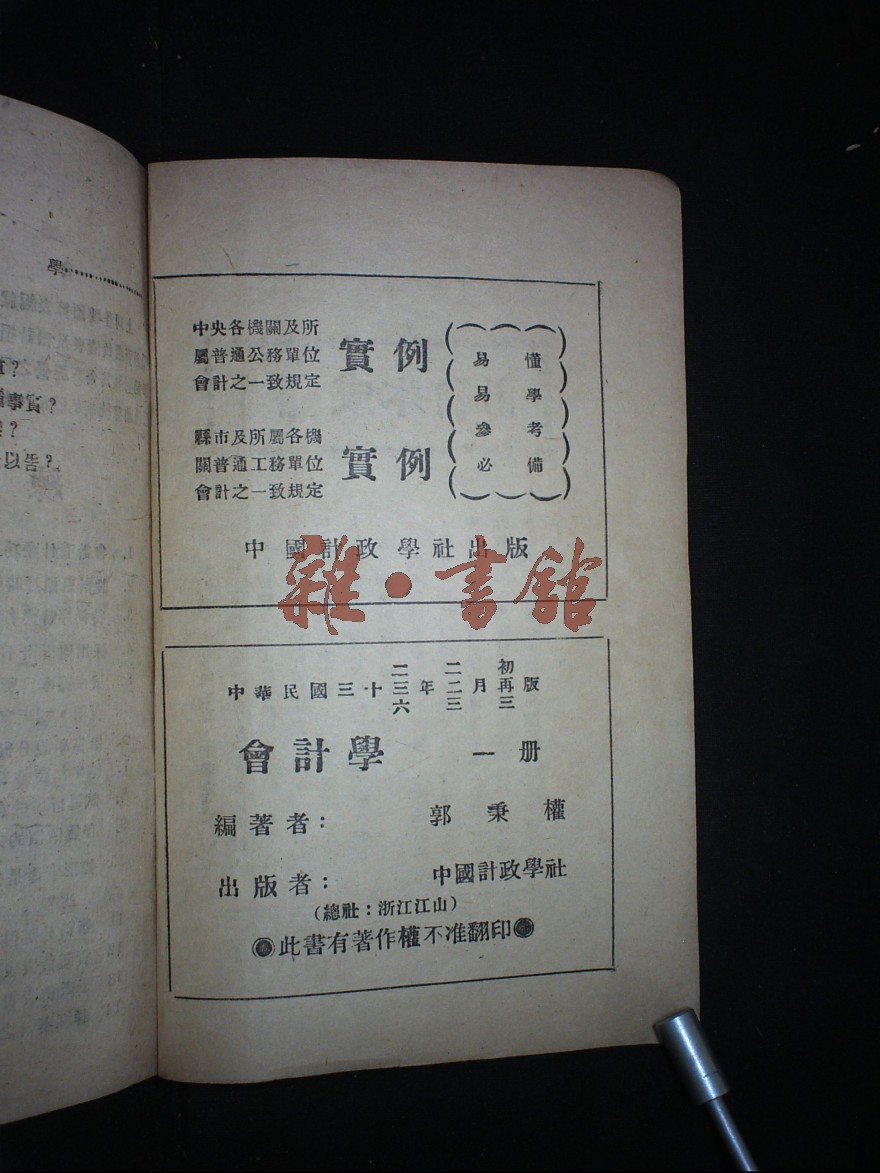 中央各機關及所
屬普通公務單位
會計之一致規定
實例
縣市及所屬各機
關普通工務單位
會計之一致規定
實例
易懂
易學
參考
必備
中國計政學社出版
雜·書館
二 二 初
中華民國三十三年二月再版
六 三 三
會計學 一册
編著者: 郭秉權
出版者: 中國計政學社
(總社:浙江江山)
●此書有著作權不准翻印●
學
事實?
以告?